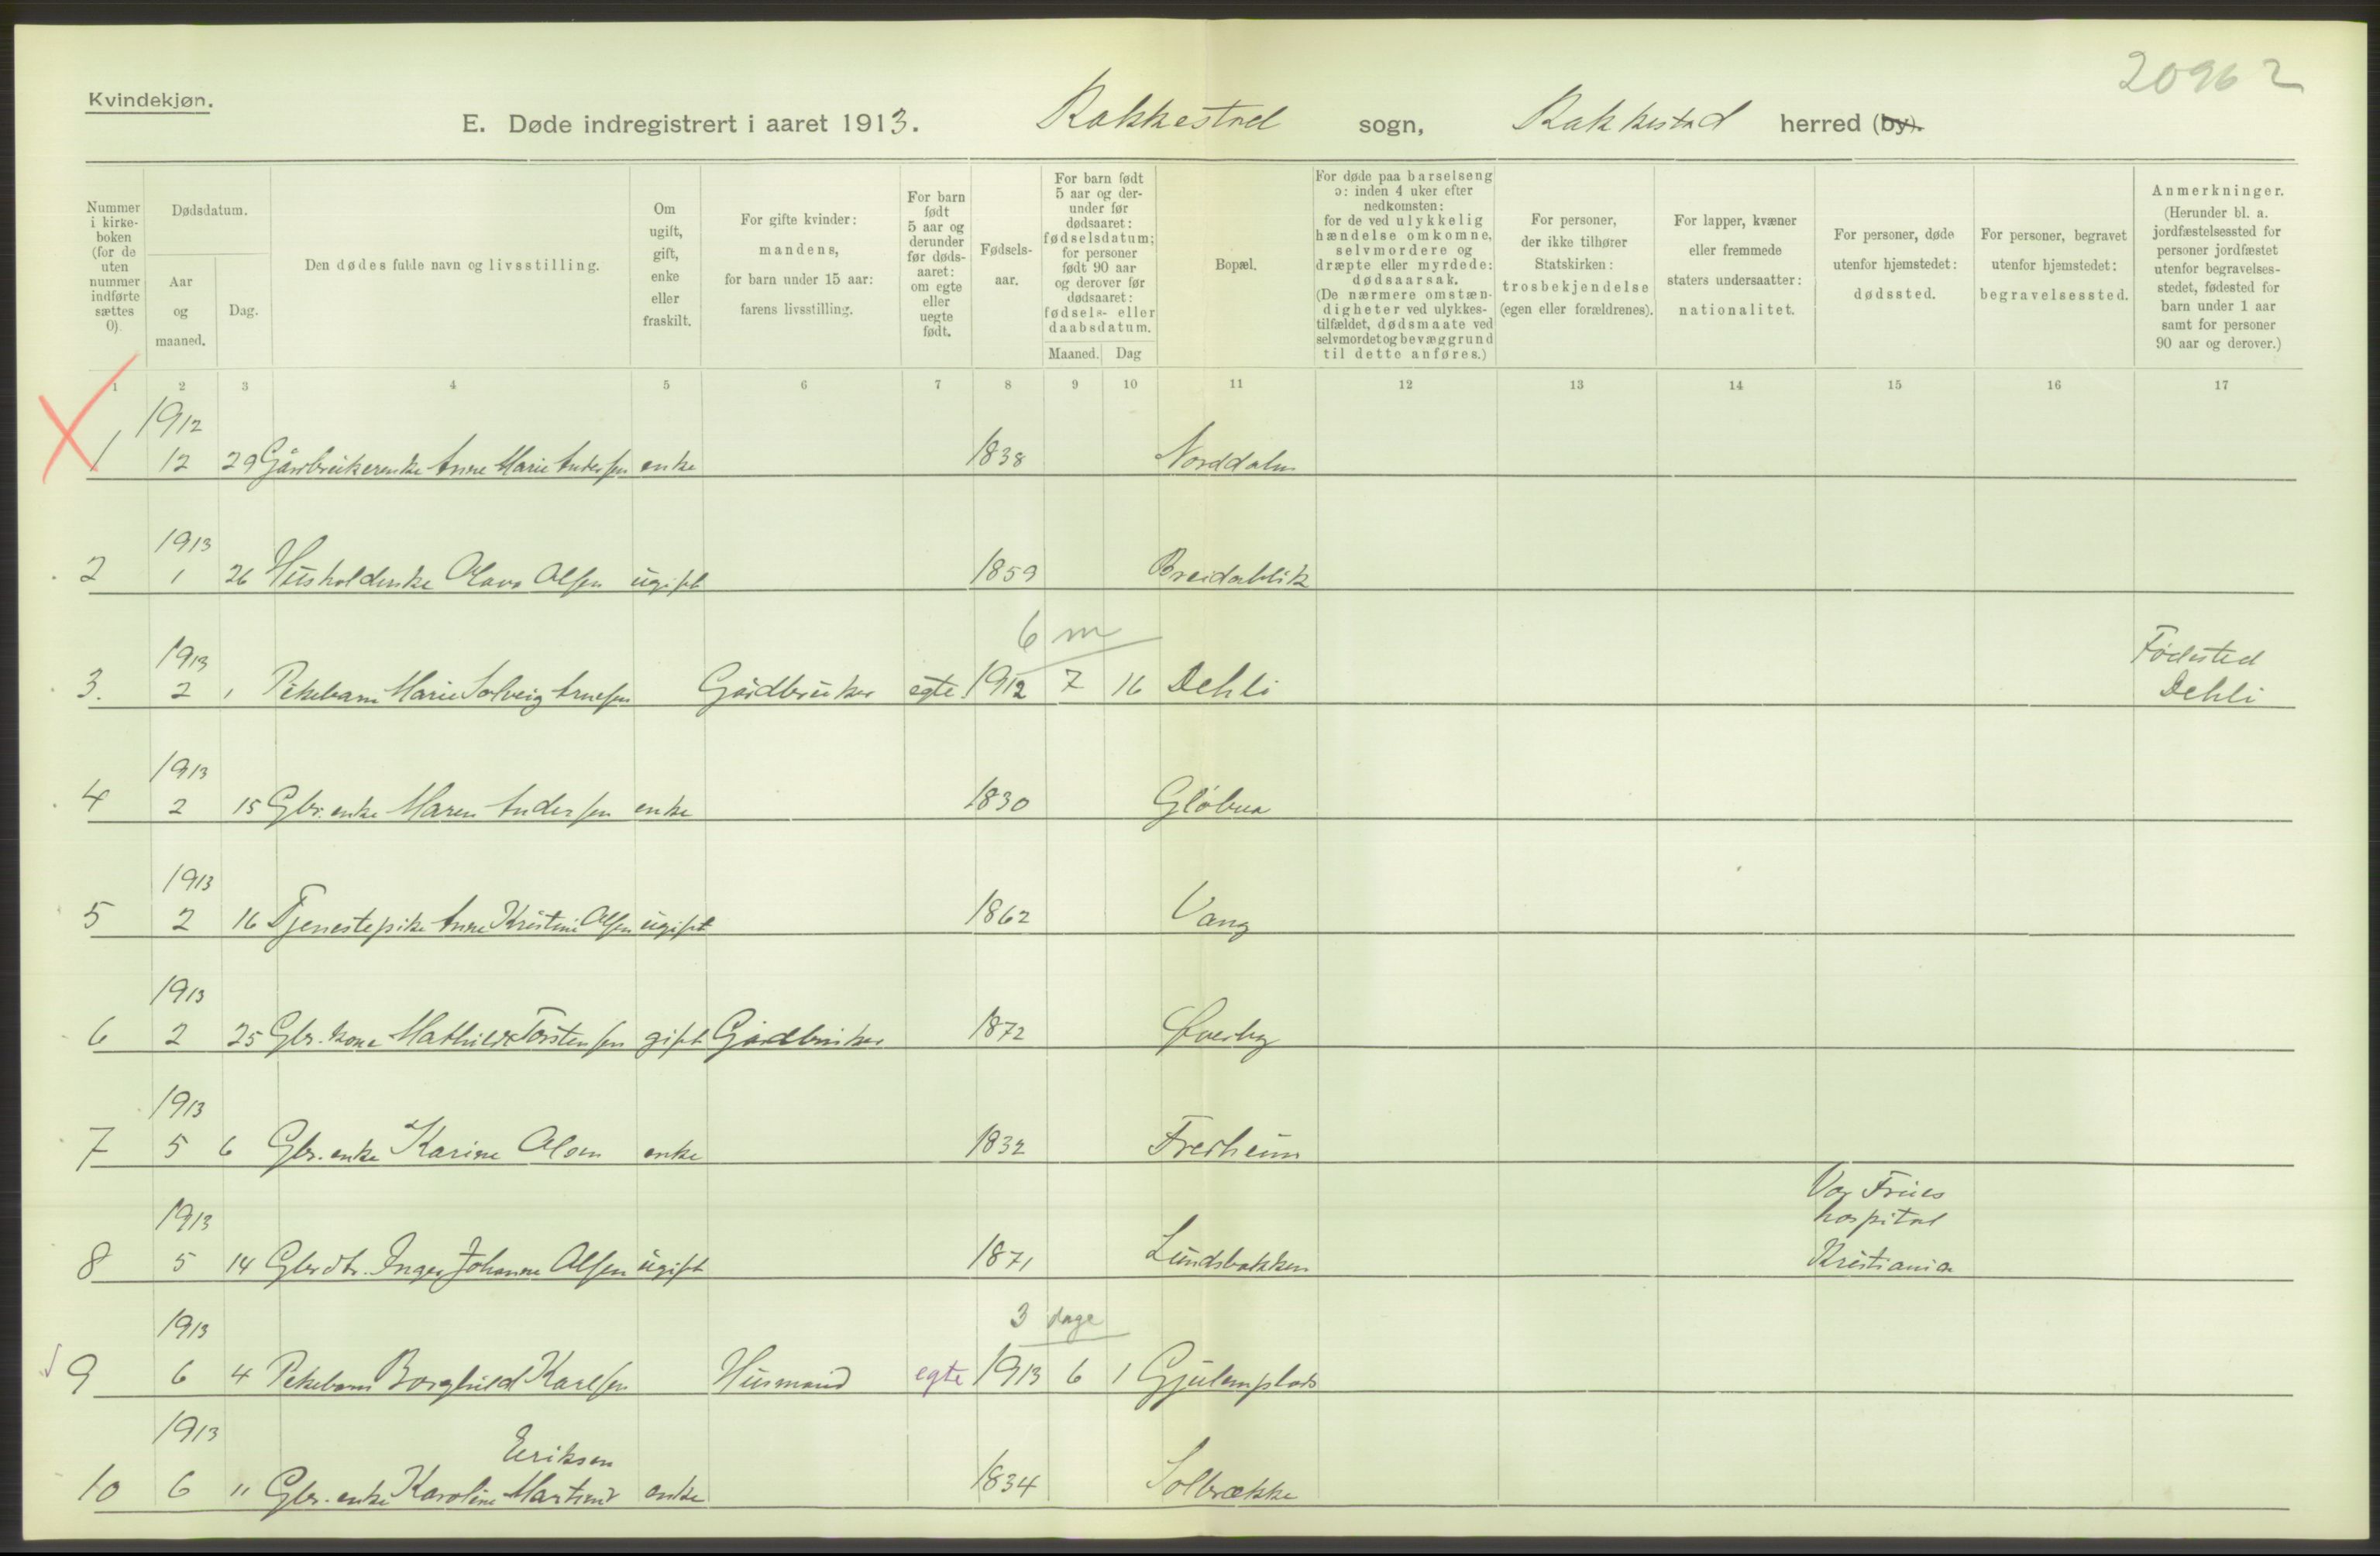 20962
Kvindekjøn.
E. Døde indregistrert i aaret 1913. Rakkestad sogn, Rakkestad herred (by).
Nummer i kirkeboken (for de uten nummer indførte sættes 0).
Dødsdatum.
Aar og maaned.
Dag.
Den dødes fulde navn og livsstilling.
Om ugift, gift, enke eller fraskilt.
For gifte kvinder: mandens, for barn under 15 aar: farens livsstilling.
For barn født 5 aar og derunder før dødsaaret: om egte eller uegte født.
Fødselsaar.
For barn født 5 aar og derunder før dødsaaret: fødselsdatum; for personer født 90 aar og derover før dødsaaret: fødsels- eller daabsdatum.
Maaned. Dag
Bopæl.
For døde paa barselseng ɔ: inden 4 uker efter nedkomsten: for de ved ulykkelig hændelse omkomne, selvmordere og dræpte eller myrdede: dødsaarsak. (De nærmere omstændigheter ved ulykkestilfældet, dødsmaate ved selvmordet og bevæggrund til dette anføres.)
For personer, der ikke tilhører Statskirken: trosbekjendelse (egen eller forældrenes).
For lapper, kvæner eller fremmede staters undersaatter: nationalitet.
For personer, døde utenfor hjemstedet: dødssted.
For personer, begravet utenfor hjemstedet: begravelsessted.
Anmerkninger. (Herunder bl. a. jordfæstelsessted for personer jordfæstet utenfor begravelsesstedet, fødested for barn under 1 aar samt for personer 90 aar og derover.)
1 2 3 4 5 6 7 8 9 10 11 12 13 14 15 16 17
1912
1 12 29 Gårdbrukerenke Anne Marie Andersen enke 1838 Norddalen
1913
2 1 26 Husholderske Olava Olsen ugift 1859 Breidablik
6 m
1913 Fødested
3. 2 1 Pikebarn Marie Solveig Arnesen Gårdbruker egte 1912 7 16 Dehli Dehli
1913
4 2 15 Gbr. enke Maren Andersen enke 1830 Gløbua
1913
5 2 16 Tjenestepike Anne Kristine Olsen ugift 1862 Vang
1913
6 2 25 Gbr. kone Mathilde Torstensen gift Gårdbruker 1872 Øverby
1913
7 5 6 Gbr. enke Karine Olsen enke 1832 Fredheim
1913 Vor Frues hospital
8 5 14 Gbrdtr. Inger Johanne Olsen ugift 1871 Lundsbakken Kristiania
3 dage
1913
9 6 4 Pikebarn Borghild Karlsen Husmand egte 1913 6 1
1913 Eriksen
10 6 11 Gbr. enke Karoline enke 1834 Solbrække